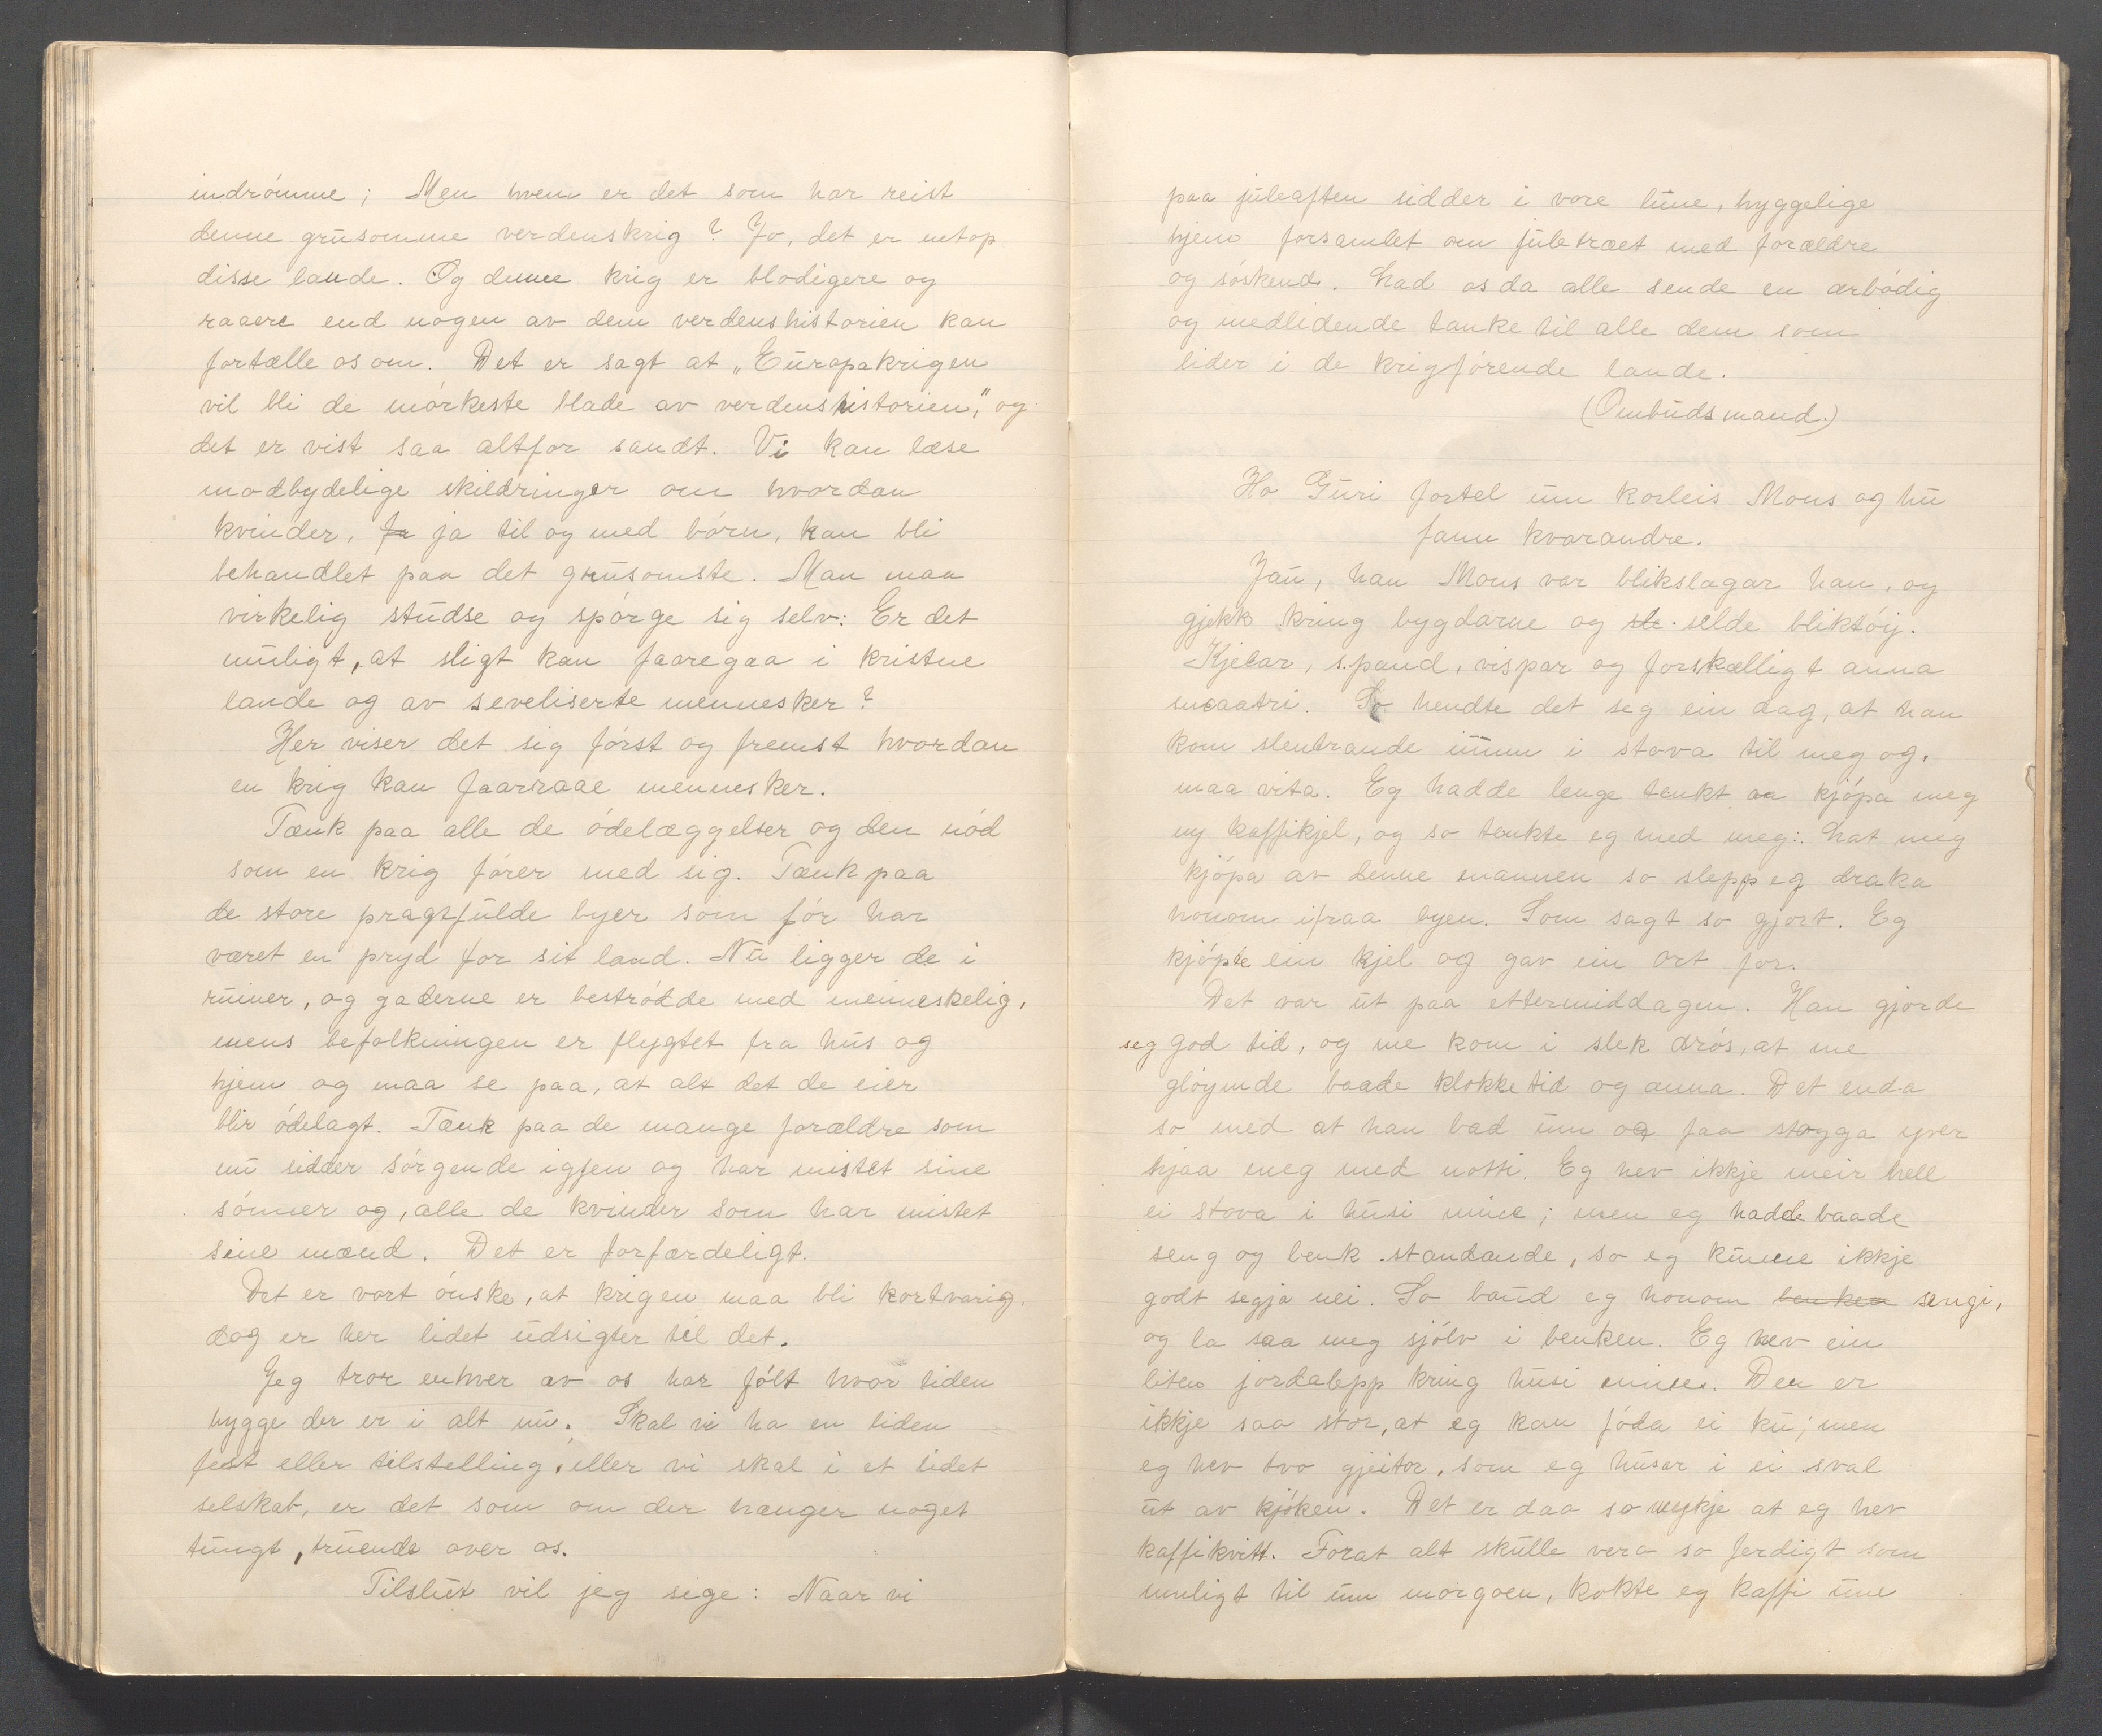 indrømme; Men hvem er det som har reist
denne grusomme verdenskrig? Jo, det er netop
disse lande. Og denne krig er blodigere og
raaere end nogen av dem verdenshistorien kan
fortælle os om. Det er sagt at „Europakrigen
vil bli de mørkeste blade av verdenshistorien," og
det er vist saa altfor sandt. Vi kan læse
modbydelige skildringer om hvordan
kvinder, ja ja til og med børn, kan bli
behandlet paa det grusomste. Man maa
virkelig studse og spørge sig selv: Er det
muligt, at sligt kan faaregaa i kristne
lande og av seveliserte mennesker?
Her viser det sig først og fremst hvordan
en krig kan faarraae mennesker.
Tænk paa alle de ødelæggelser og den nød
som en krig fører med sig. Tænk paa
de store pragtfulde byer som før har
været en pryd for sit land. Nu ligger de i
ruiner, og gaderne er bestrødde med menneskelig,
mens befolkningen er flygtet fra hus og
hjem og maa se paa, at alt det de eier
blir ødelagt. Tænk paa de mange forældre som
nu sidder sørgende igjen og har mistet sine
sønner og, alle de kvinder som har mistet
sine mænd. Det er forfærdeligt.
Det er vort ønske, at krigen maa bli kortvarig.
dog er her lidet udsigter til det.
Jeg tror enhver av os har følt hvor liden
hygge der er i alt nu. Skal vi ha en liden
fest eller tilstelling, eller vi skal i et lidet
selskab, er det som om der hænger noget
tungt, truende over os.
Tilslut vil jeg sige: Naar vi
paa juleaften sidder i vore lune, hyggelige
hjem forsamlet om juletræet med forældre
og søskend. Lad os da alle sende en ærbødig
og medlidende tanke til alle dem som
lider i de krigførende lande.
(Ombudsmand.)
Ho Guri fortel um korleis Mons og hu
fann kvarandre.
Jau, han Mons var blikslagar han, og
gjekk kring bygdarne og sle selde bliktøy.
Kjelar, spand, vispar og forskælligt anna
smaatri. So hendte det seg ein dag, at han
kom slentrande innum i stova til meg og.
maa vita. Eg hadde lenge tenkt aa kjøpa meg
ny kaffikjel, og so tenkte eg med meg: Lat meg
kjøpa av denne mannen so slepp eg draka
honom ifraa byen. Som sagt so gjort. Eg
kjøpte ein kjel og gav ein ort for.
Det var ut paa ettermiddagen. Han gjorde
seg god tid, og me kom i slek drøs, at me
gløymde baade klokketid og anna. Det enda
so med at han bad um og faa stogga yver
hjaa meg med notti. Eg hev ikkje meir hell
ei stova i husi mine; men eg hadde baade
seng og benk standande, so eg kunne ikkje
godt segja nei. So baud eg honom benken sengi,
og la saa meg sjølv i benken. Eg hev ein
liten jordalepp kring husi mine. Den er
ikkje saa stor, at eg kan føda ei ku; men
eg hev tvo gjeitor, som eg husar i ei sval
ut av kjøken. Det er daa so mykje at eg hev
kaffikvitt. Forat alt skulle vera so ferdigt som
muligt til um morgoen, kokte eg kaffi um